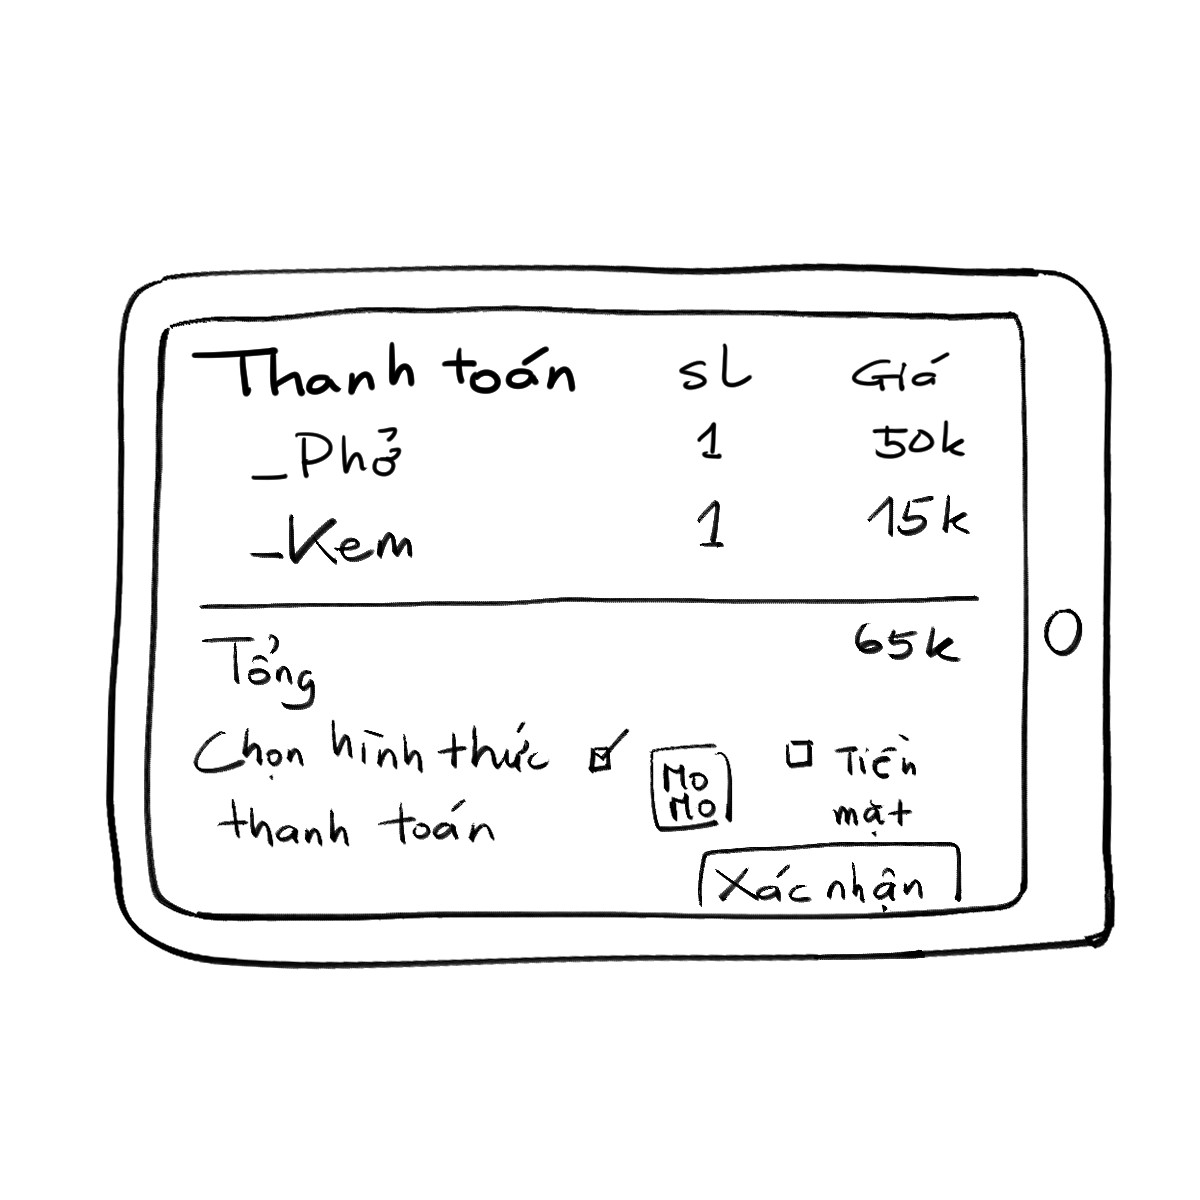 Thanh toán SL Giá
_Phở 1 50k
_Kem 1 15k
Tổng 65k
Chọn hình thức ☑ MO ☐ Tiền
thanh toán MO mặt
Xác nhận